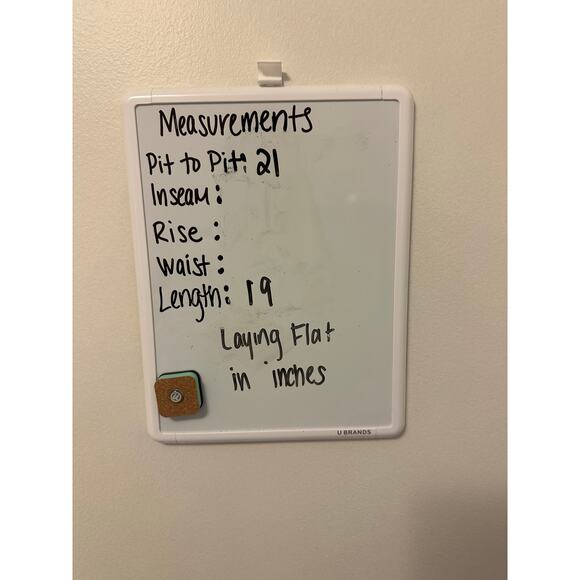 Measurements
Pit to Pit: 21
Inseam:
Rise:
Waist:
Length: 19
Laying Flat
in inches
U BRANDS